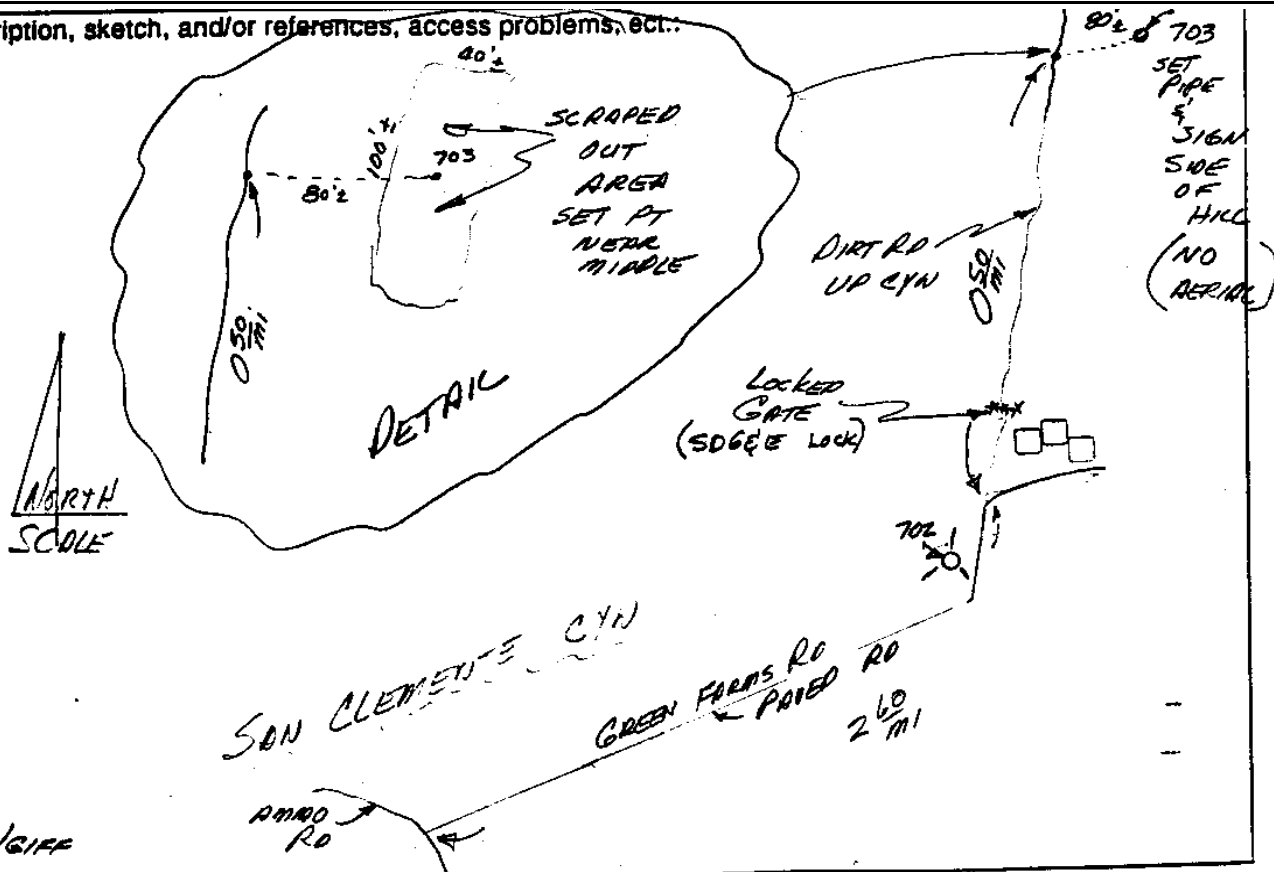 iption, sketch, and/or references, access problems, ect.:
40'±
100'±
703
80'±
SCRAPED
OUT
AREA
SET PT
NEAR
MIDDLE
0 50/MI
DETAIL
NORTH
SCALE
80'±
703
SET
PIPE
&
SIGN
SIDE
OF
HILL
(NO
AERIAL)
DIRT RD
UP CYN
0 50/MI
LOCKED
GATE
(SDG&E LOCK)
702
SAN CLEMENTE CYN
GREEN FARMS RD
PAVED RD
2 60/MI
AMMO
RD